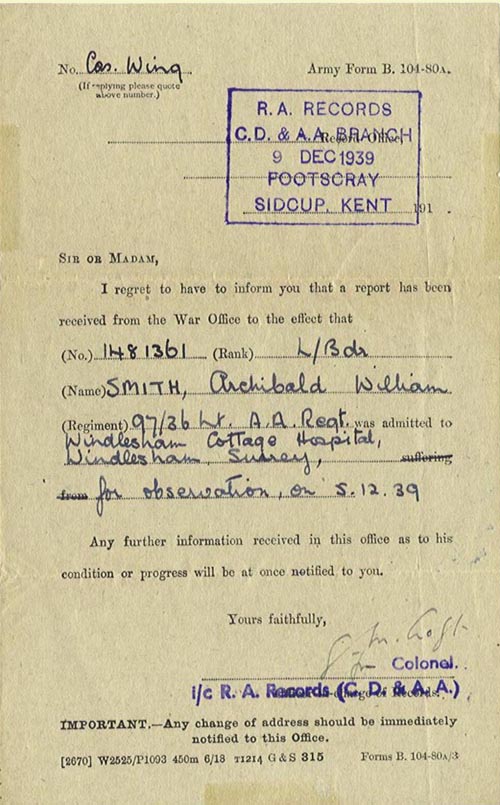 No. Cas. Wing Army Form B. 104-80A.
(If replying please quote
above number.)
R. A. RECORDS
C.D. & A.A. BRANCH
Record Office,
9 DEC 1939
FOOTSCRAY
SIDCUP, KENT
191 .
SIR OR MADAM,
I regret to have to inform you that a report has been
received from the War Office to the effect that
(No.) 1481361 (Rank) L/Bdr
(Name) SMITH, Archibald William
(Regiment) 97/36 Lt. A.A. Regt. was admitted to
Windlesham Cottage Hospital,
Windlesham, Surrey, suffering
from for observation, on 5.12.39
Any further information received in this office as to his
condition or progress will be at once notified to you.
Yours faithfully,
for Colonel.
i/c R. A. Records (C. D. & A. A.)
IMPORTANT.—Any change of address should be immediately
notified to this Office.
[2670] W2525/P1093 450m 6/18 T1214 G & S 315 Forms B. 104-80A/3